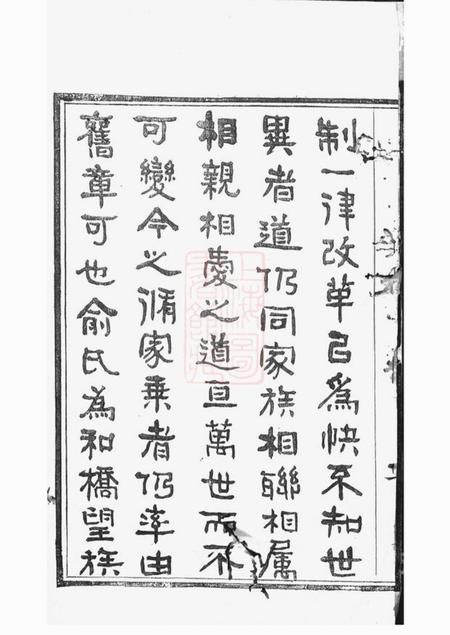 制一律改革以為快不知世
異者道仍同家族相聯相属
相親相愛之道亘萬世而不
可變今之脩家乗者仍率由
舊章可也俞氏為和橋望族